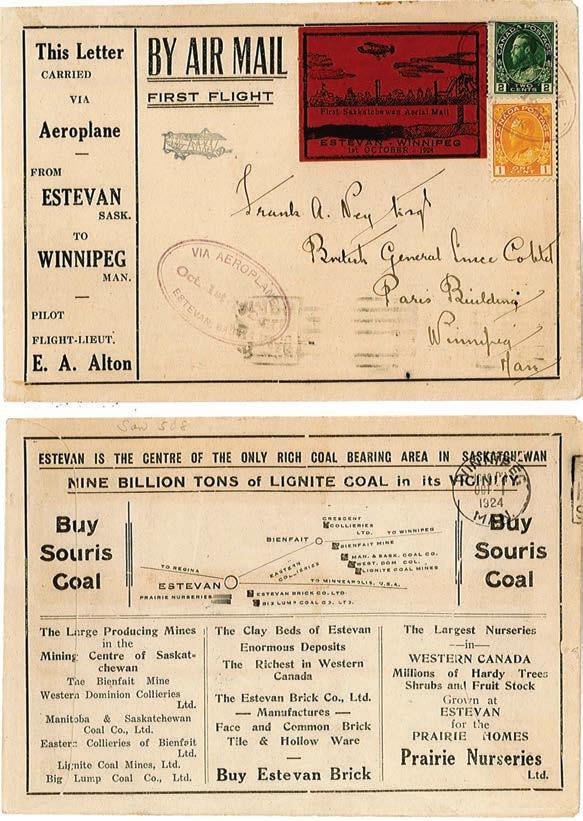 This Letter
CARRIED
VIA
Aeroplane
FROM
ESTEVAN
SASK.
TO
WINNIPEG
MAN.
PILOT
FLIGHT-LIEUT.
E. A. Alton
BY AIR MAIL
FIRST FLIGHT
First Saskatchewan Aerial Mail
ESTEVAN - WINNIPEG
1st OCTOBER - 1924
CANADA POSTAGE
2 TWO CENTS 2
CANADA POSTAGE
1 ONE CENT 1
VIA AEROPLANE
Oct. 1st
ESTEVAN
Frank A. Ney Esq
British General
Paris Building
Winnipeg
Man
San 568
ESTEVAN IS THE CENTRE OF THE ONLY RICH COAL BEARING AREA IN SASKATCHEWAN
NINE BILLION TONS of LIGNITE COAL in its VICINITY
WINNIPEG
OCT 1
1924
MAN.
Buy
Souris
Coal
CRESCENT
COLLIERIES
LTD.
TO WINNIPEG
BIENFAIT
BIENFAIT MINE
MAN. & SASK. COAL CO.
WEST. DOM. COL.
LIGNITE COAL MINES
TO REGINA
EASTERN
COLLIERIES
ESTEVAN
TO MINNEAPOLIS, U.S.A.
PRAIRIE NURSERIES
ESTEVAN BRICK CO. LTD.
BIG LUMP COAL CO. LTD.
Buy
Souris
Coal
The Large Producing Mines
in the
Mining Centre of Saskat-
chewan
The Bienfait Mine
Western Dominion Collieries
Ltd.
Manitoba & Saskatchewan
Coal Co., Ltd.
Eastern Collieries of Bienfait
Ltd.
Lignite Coal Mines, Ltd.
Big Lump Coal Co., Ltd.
The Clay Beds of Estevan
Enormous Deposits
The Richest in Western
Canada
The Estevan Brick Co., Ltd.
— Manufactures —
Face and Common Brick
Tile & Hollow Ware
Buy Estevan Brick
The Largest Nurseries
—in—
WESTERN CANADA
Millions of Hardy Trees
Shrubs and Fruit Stock
Grown at
ESTEVAN
for the
PRAIRIE HOMES
Prairie Nurseries
Ltd.